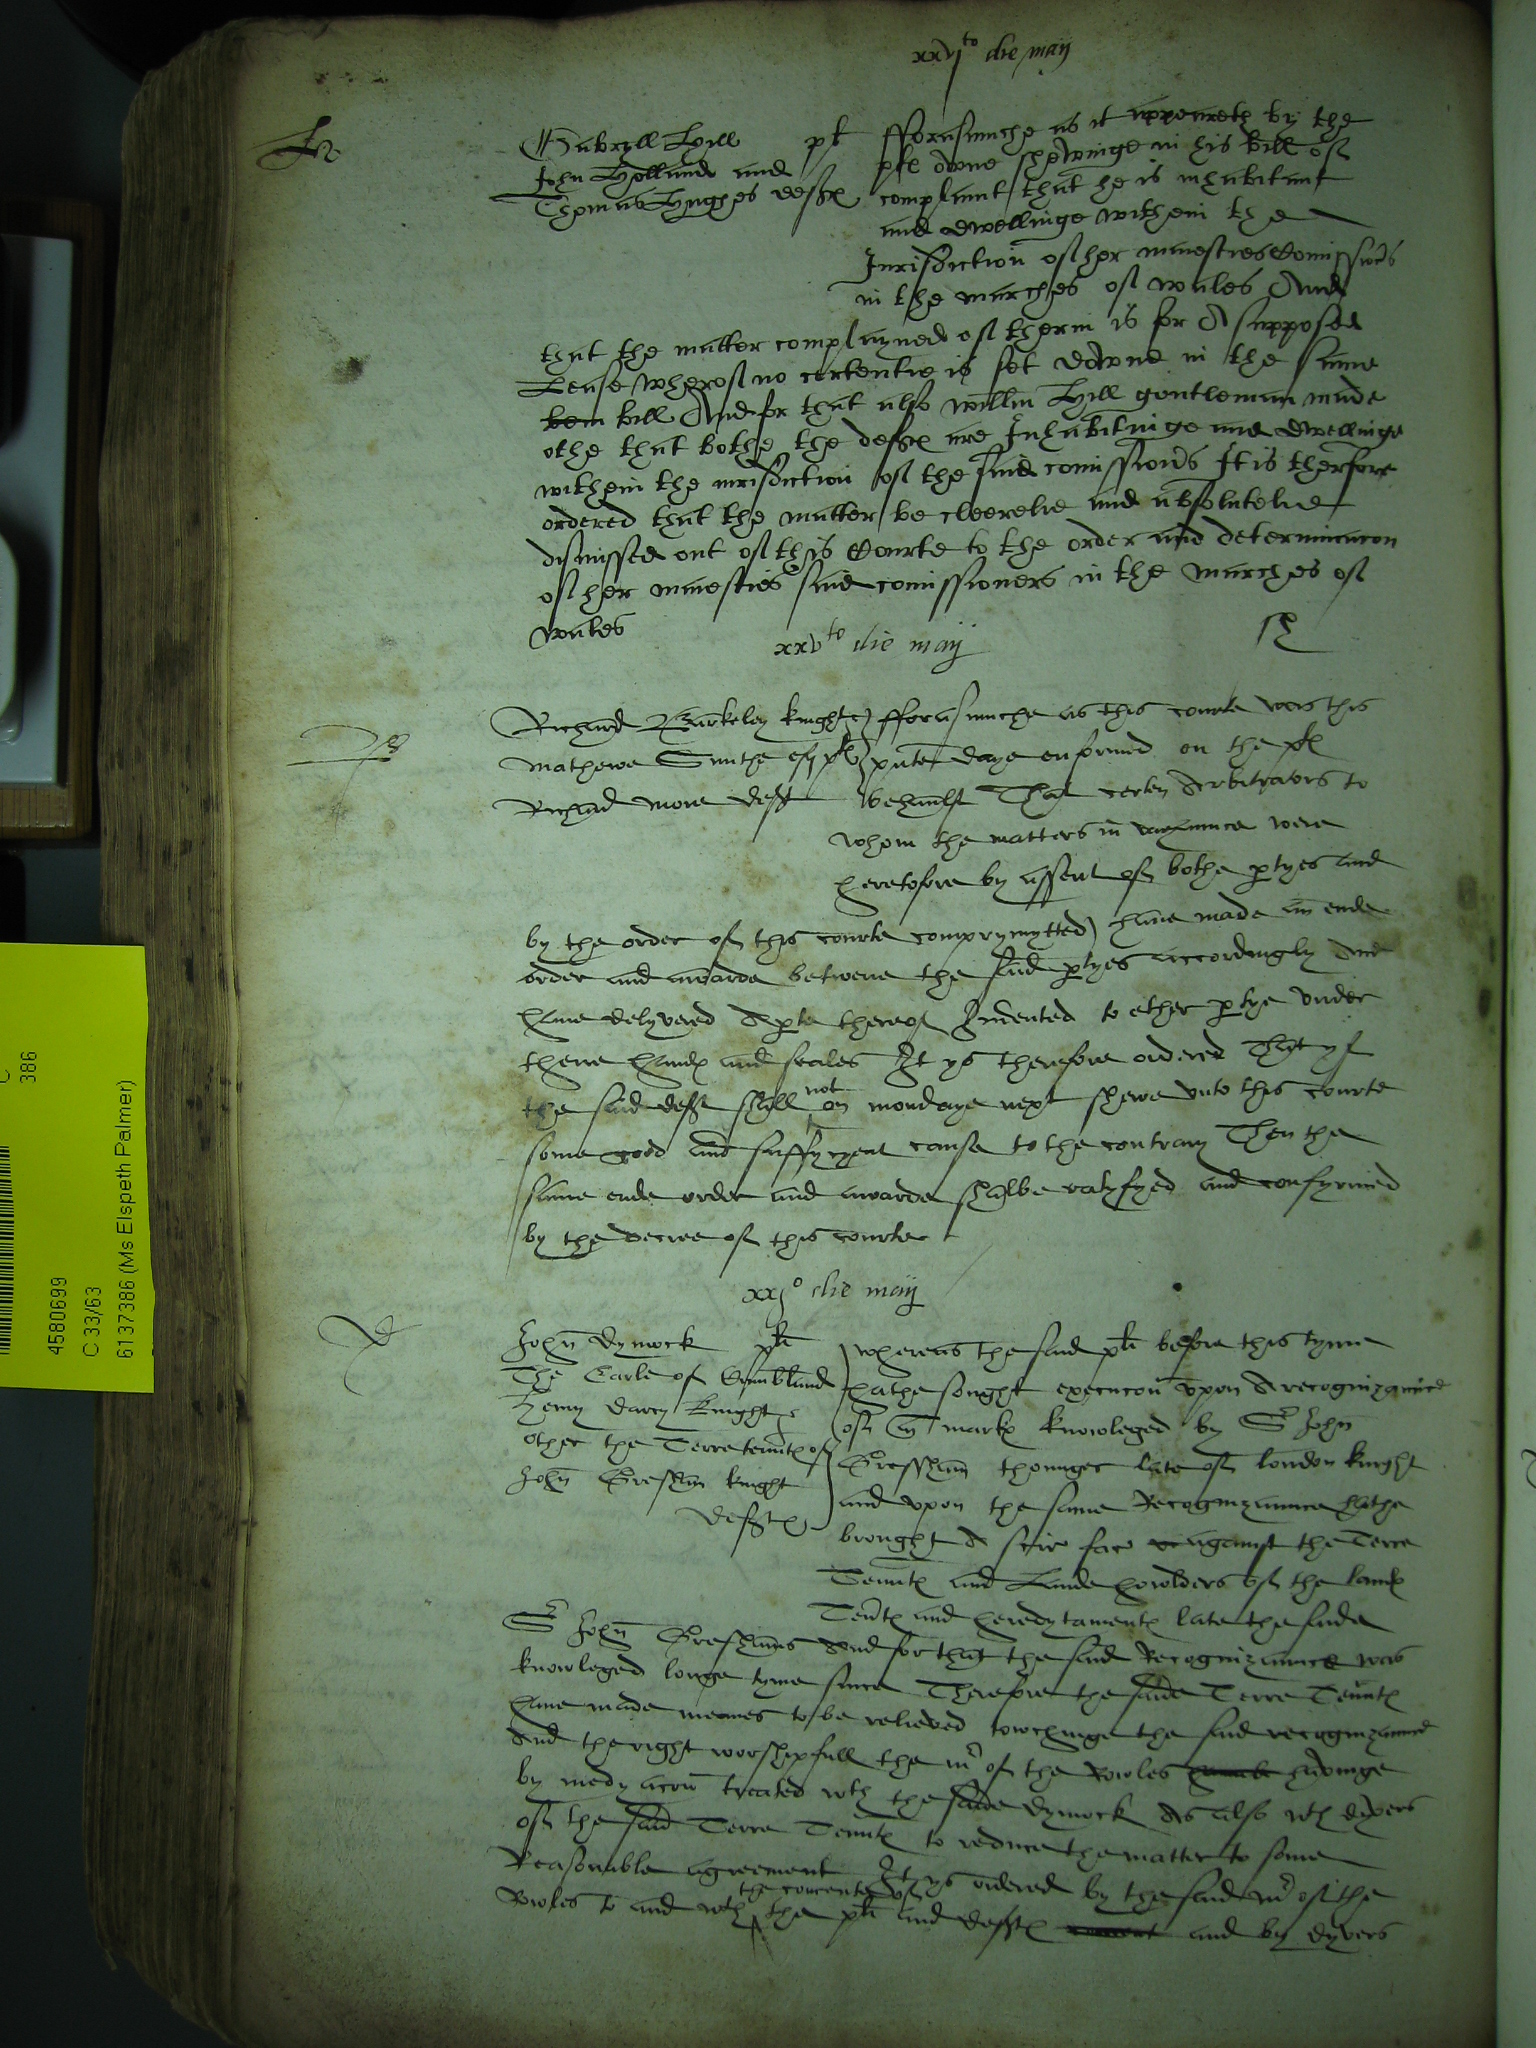 xxvj^to die maij
Gabryell Hyll plt
John Holland and
Thomas Hughes defts
fforasmuche as it appeareth by the
pltes owne shewinge in his bill of
complaint that he is inhabitant
and dwellinge within the
Jurisdiction of her maiesties Comissiōs
in the marches of wales And
that the matter complayned of therin is for A supposed
Lease wherof no certentie is set downe in the same
bem bill And for that also Willm Hyll gentleman made
othe that bothe the defts are Inhabitinge and dwellinge
within the iurisdiction of the said comissiōs It is therfore
ordered that the matter be cleerelie and absolutelie
dismissed out of this Courte to the order and determinacon
of her maiesties said comissioners in the marches of
wales
xxv^to die maij
Richard Barkeley knight &
Mathewe Smithe esq plts
Richard more deft
fforasmuche as this courte was this
pnte daye enformed on the plts
behaulf That certen Arbitrators to
whom the matters in variaunce were
heretofore by assent of bothe ptyes and
by the order of this courte comprymytted) have made an ende
order and awarde betwene the said ptyes accordingly And
have delyvered A pte thereof Indented to ether ptye under
theire hands and seales It ys therefore ordered That yf
the said deft shall not on mondaye next shewe unto this courte
some good and suffycyent cause to the contrary Then the
same ende order and awarde shalbe ratyfyed and confyrmed
by the decree of this courte
xxj^o die maij
John Dymock plt
The Earle of Cumbland
Henry Darcy knight &
other the Terretennts of
John Gresham knight
defts
whereas the said plt before this tyme
hathe sought execucon upon A recognizaunce
of marks knowleged by Sr John
Gressham thounger late of london knight
and upon the same Recognizaunce hathe
brought A scire fac against the Terre
Tennts and Lande howlders of the lands
Tents and heredytaments late the saide
Sr John Greshams And for that the said Recognizaunce was
knowleged longe tyme since Therefore the saide Terre Tennts
have made meanes to be relieved towchinge the said recognizaunce
And the right worshipfull the mr of the Rowles havinge
by medyacon treated wth the saide Dymock As also wth dyvers
of the said Terre Tennts to reduce the matter to some
Reasonable agreement It ys ordered by the said mr of the
Rowles to and wth the concente of the plt and defts and by dyvers
4580699
C 33/63
6137386 (Ms Elspeth Palmer)
C
386